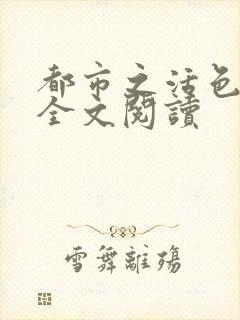 都市之活色
全文閱讀
雪舞離殤